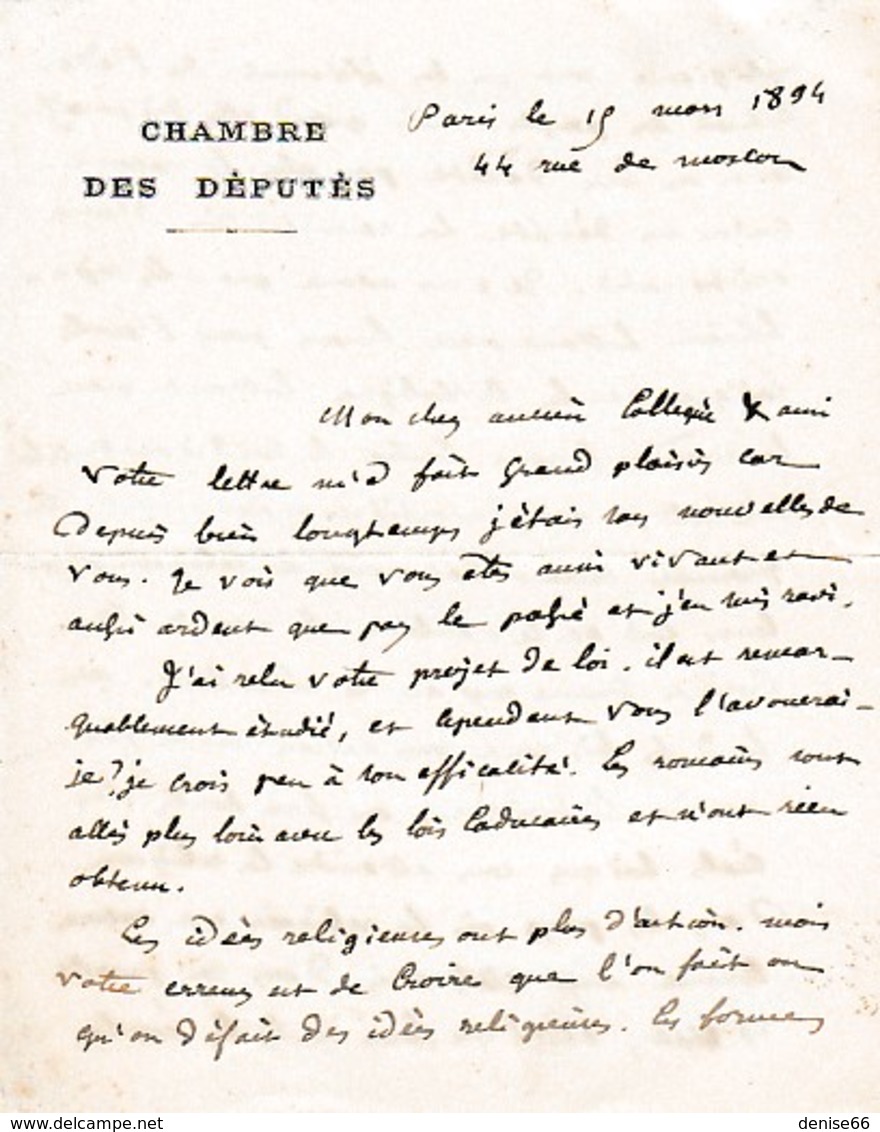 CHAMBRE
DES DÉPUTÉS
Paris le 15 mars 1894
44 rue de moscou
Mon cher ancien Collègue & ami
Votre lettre m'a fait grand plaisir car
Depuis bien longtemps j'étais sans nouvelles de
vous. Je vois que vous êtes aussi vivant et
aussi ardent que par le passé et j'en suis ravi.
J'ai relu votre projet de loi. il est remar-
quablement étudié, et cependant vous l'avouerai-
je? je crois peu à son efficacité. Les romains sont
allés plus loin avec les lois Caducaires et n'ont rien
obtenu.
Les idées religieuses ont plus d'action. mais
votre erreur est de Croire que l'on fait ou
qu'on défait des idées religieuses. les formes
denise66